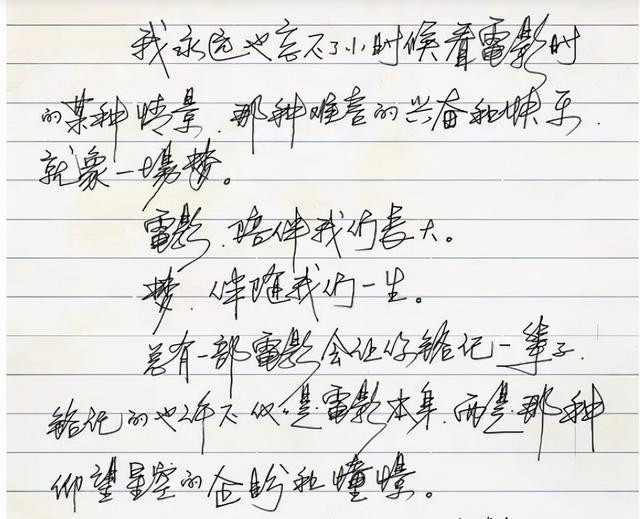 我永远也忘不了小时候看電影时
的某种情景，那种难言的兴奋和快乐，
就象一場梦。
電影，陪伴我们長大。
梦，伴随我们一生。
总有一部電影会让你铭记一辈子，
铭记的也许不仅是電影本身，而是那种
仰望星空的企盼和憧憬。